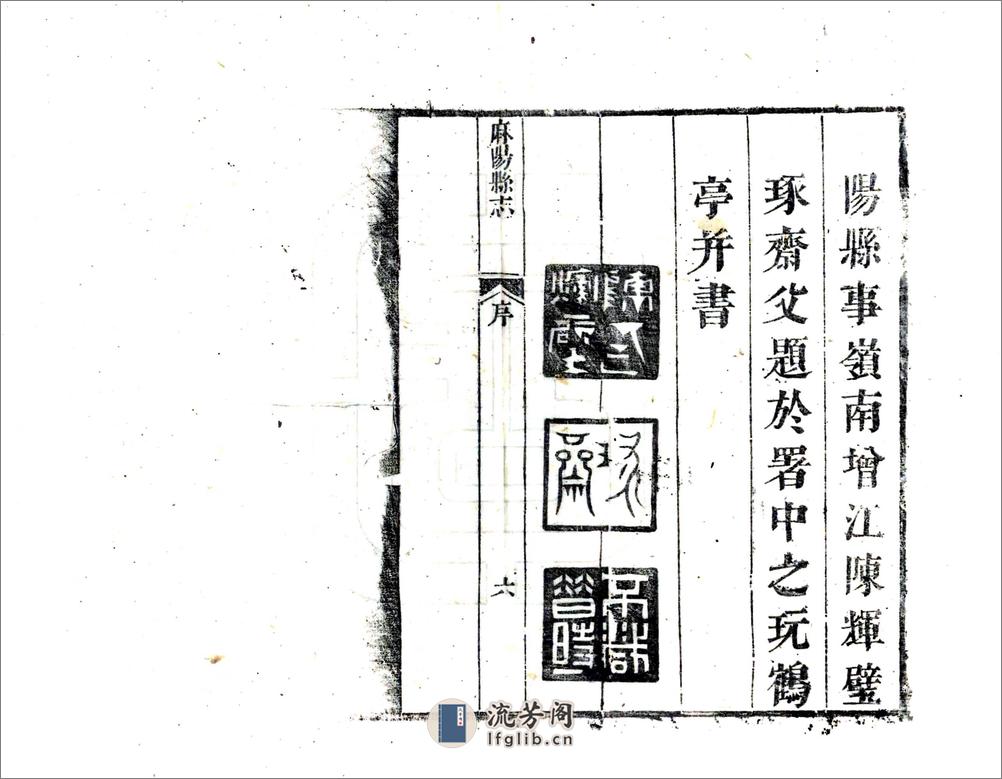 陽縣事嶺南增江陳輝璧
琢齋父題於署中之玩鶴
亭并書
陳
輝璧
琢
齋
麻陽縣志
序
六
流芳阁
lfglib.cn